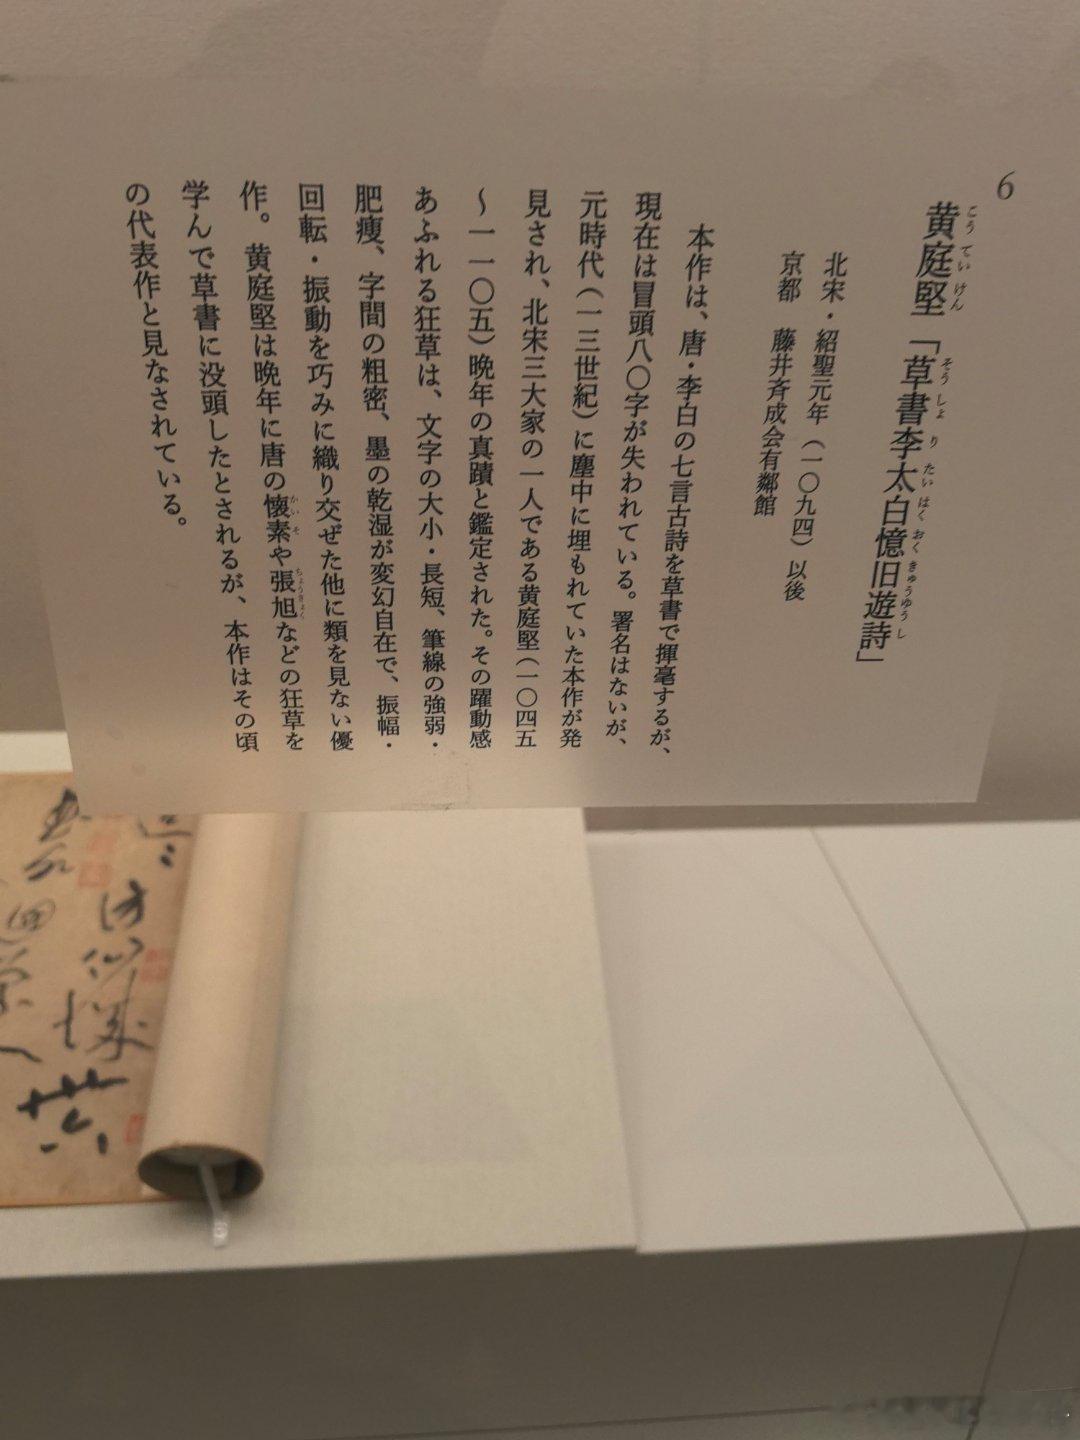 6
黄庭堅「草書李太白憶旧遊詩」
こうていけん そうしょりたいはくおくきゅうゆうし
北宋・紹聖元年（一〇九四）以後
京都 藤井斉成会有鄰館
本作は、唐・李白の七言古詩を草書で揮毫するが、
現在は冒頭八〇字が失われている。署名はないが、
元時代（一三世紀）に塵中に埋もれていた本作が発
見され、北宋三大家の一人である黄庭堅（一〇四五
〜一一〇五）晩年の真蹟と鑑定された。その躍動感
あふれる狂草は、文字の大小・長短、筆線の強弱・
肥痩、字間の粗密、墨の乾湿が変幻自在で、振幅・
回転・振動を巧みに織り交ぜた他に類を見ない優
作。黄庭堅は晩年に唐の懐素や張旭などの狂草を
かいそ ちょうきょく
学んで草書に没頭したとされるが、本作はその頃
の代表作と見なされている。